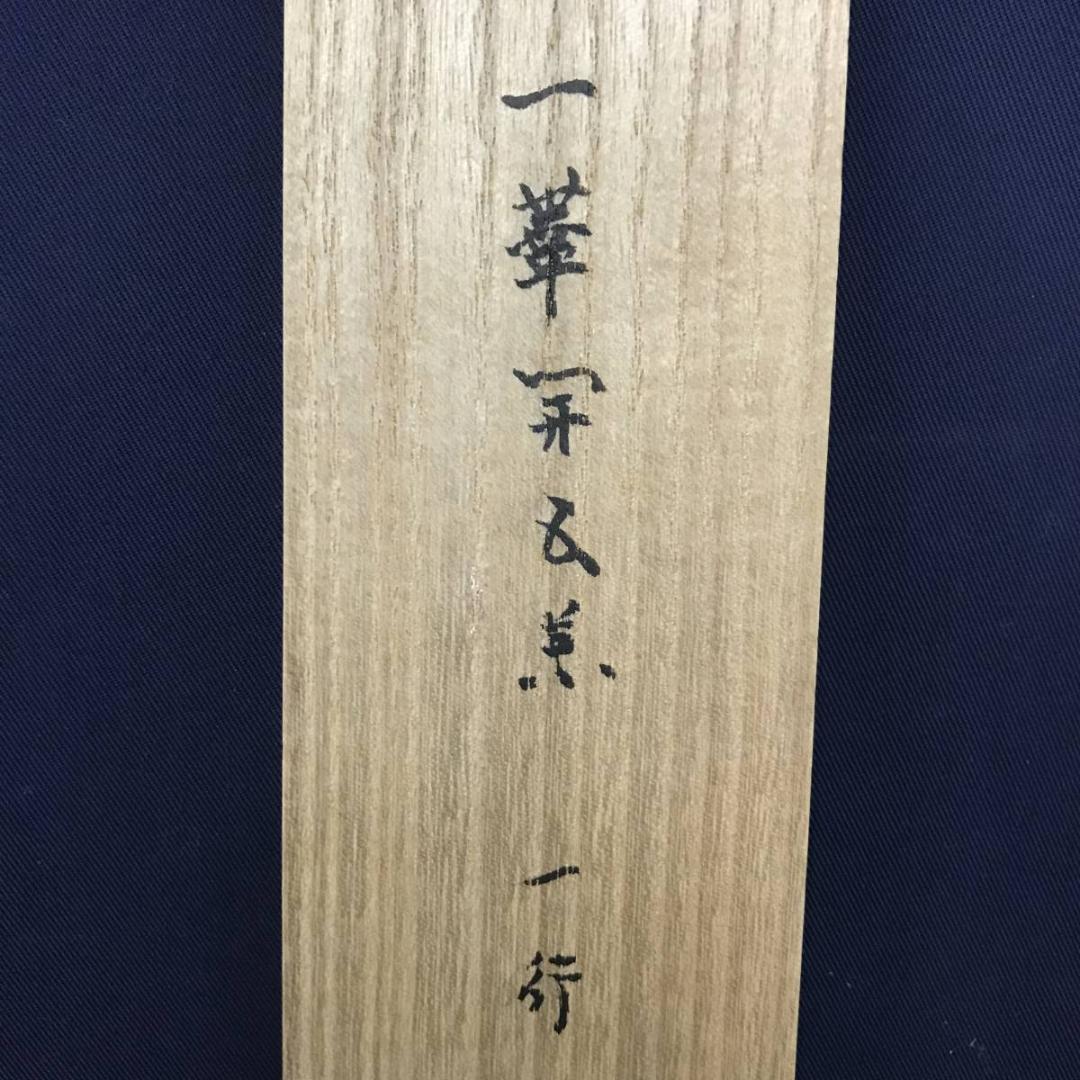 一華開五葉 一行